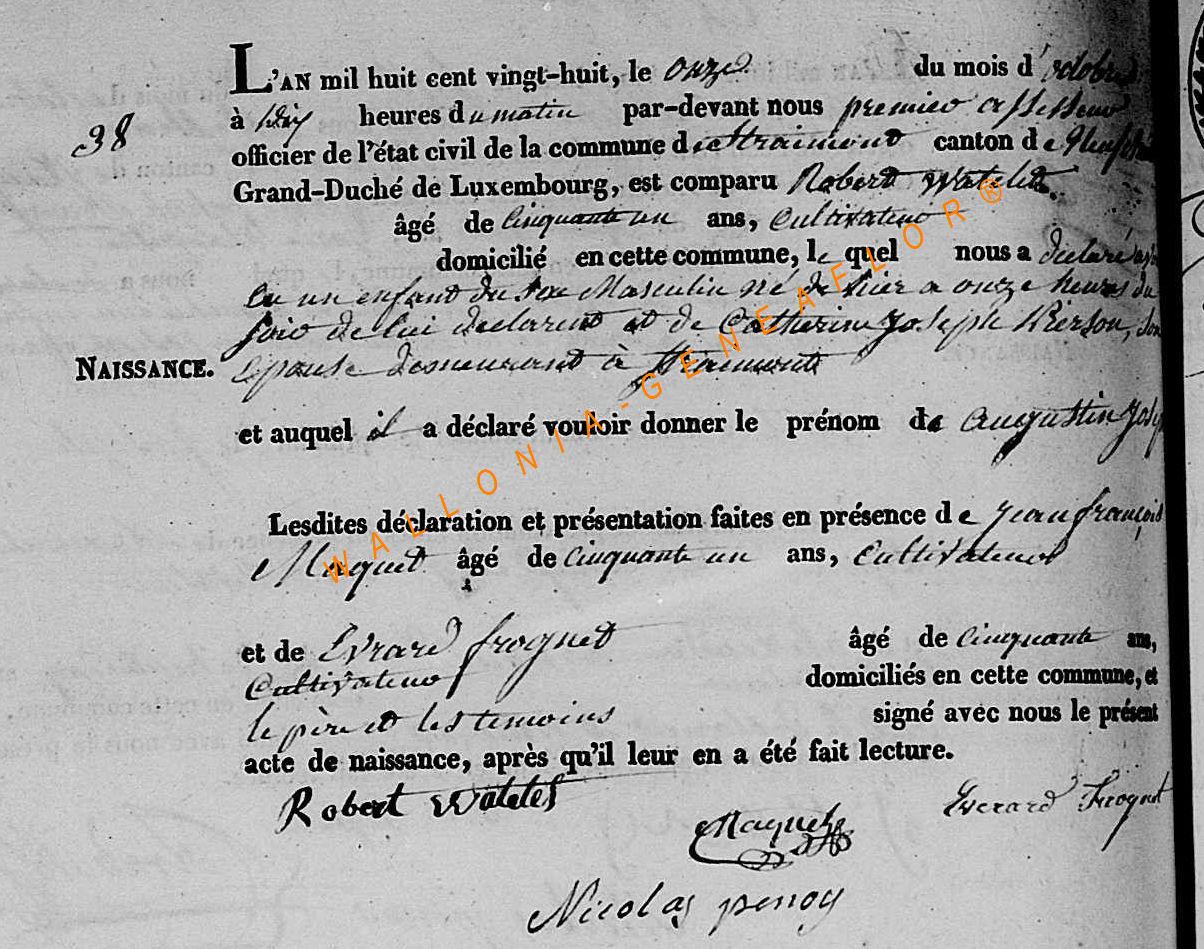 L'AN mil huit cent vingt-huit, le onze du mois d'octobre
38
à dix heures du matin par-devant nous premier assesseur
officier de l'état civil de la commune de Straimont canton de Neufch
Grand-Duché de Luxembourg, est comparu Robert Watelet
âgé de cinquante un ans, cultivateur
domicilié en cette commune, lequel nous a declaré
eu un enfant du sexe Masculin né de hier a onze heures du
soir de lui declarent et de Catherine Joseph Pierson, son
NAISSANCE. epouse demeurant à Straimont
et auquel il a déclaré vouloir donner le prénom de Augustin Josep
Lesdites déclaration et présentation faites en présence de Jean françois
Maquet âgé de cinquante un ans, cultivateur
et de Evrard froguet âgé de cinquante ans,
Cultivateur domiciliés en cette commune, et
le père et les temoins signé avec nous le présent
acte de naissance, après qu'il leur en a été fait lecture.
Robert Watelet
Everard Froguet
Maquet
Nicolas penoy
WALLONIA-GENEAFLOR®